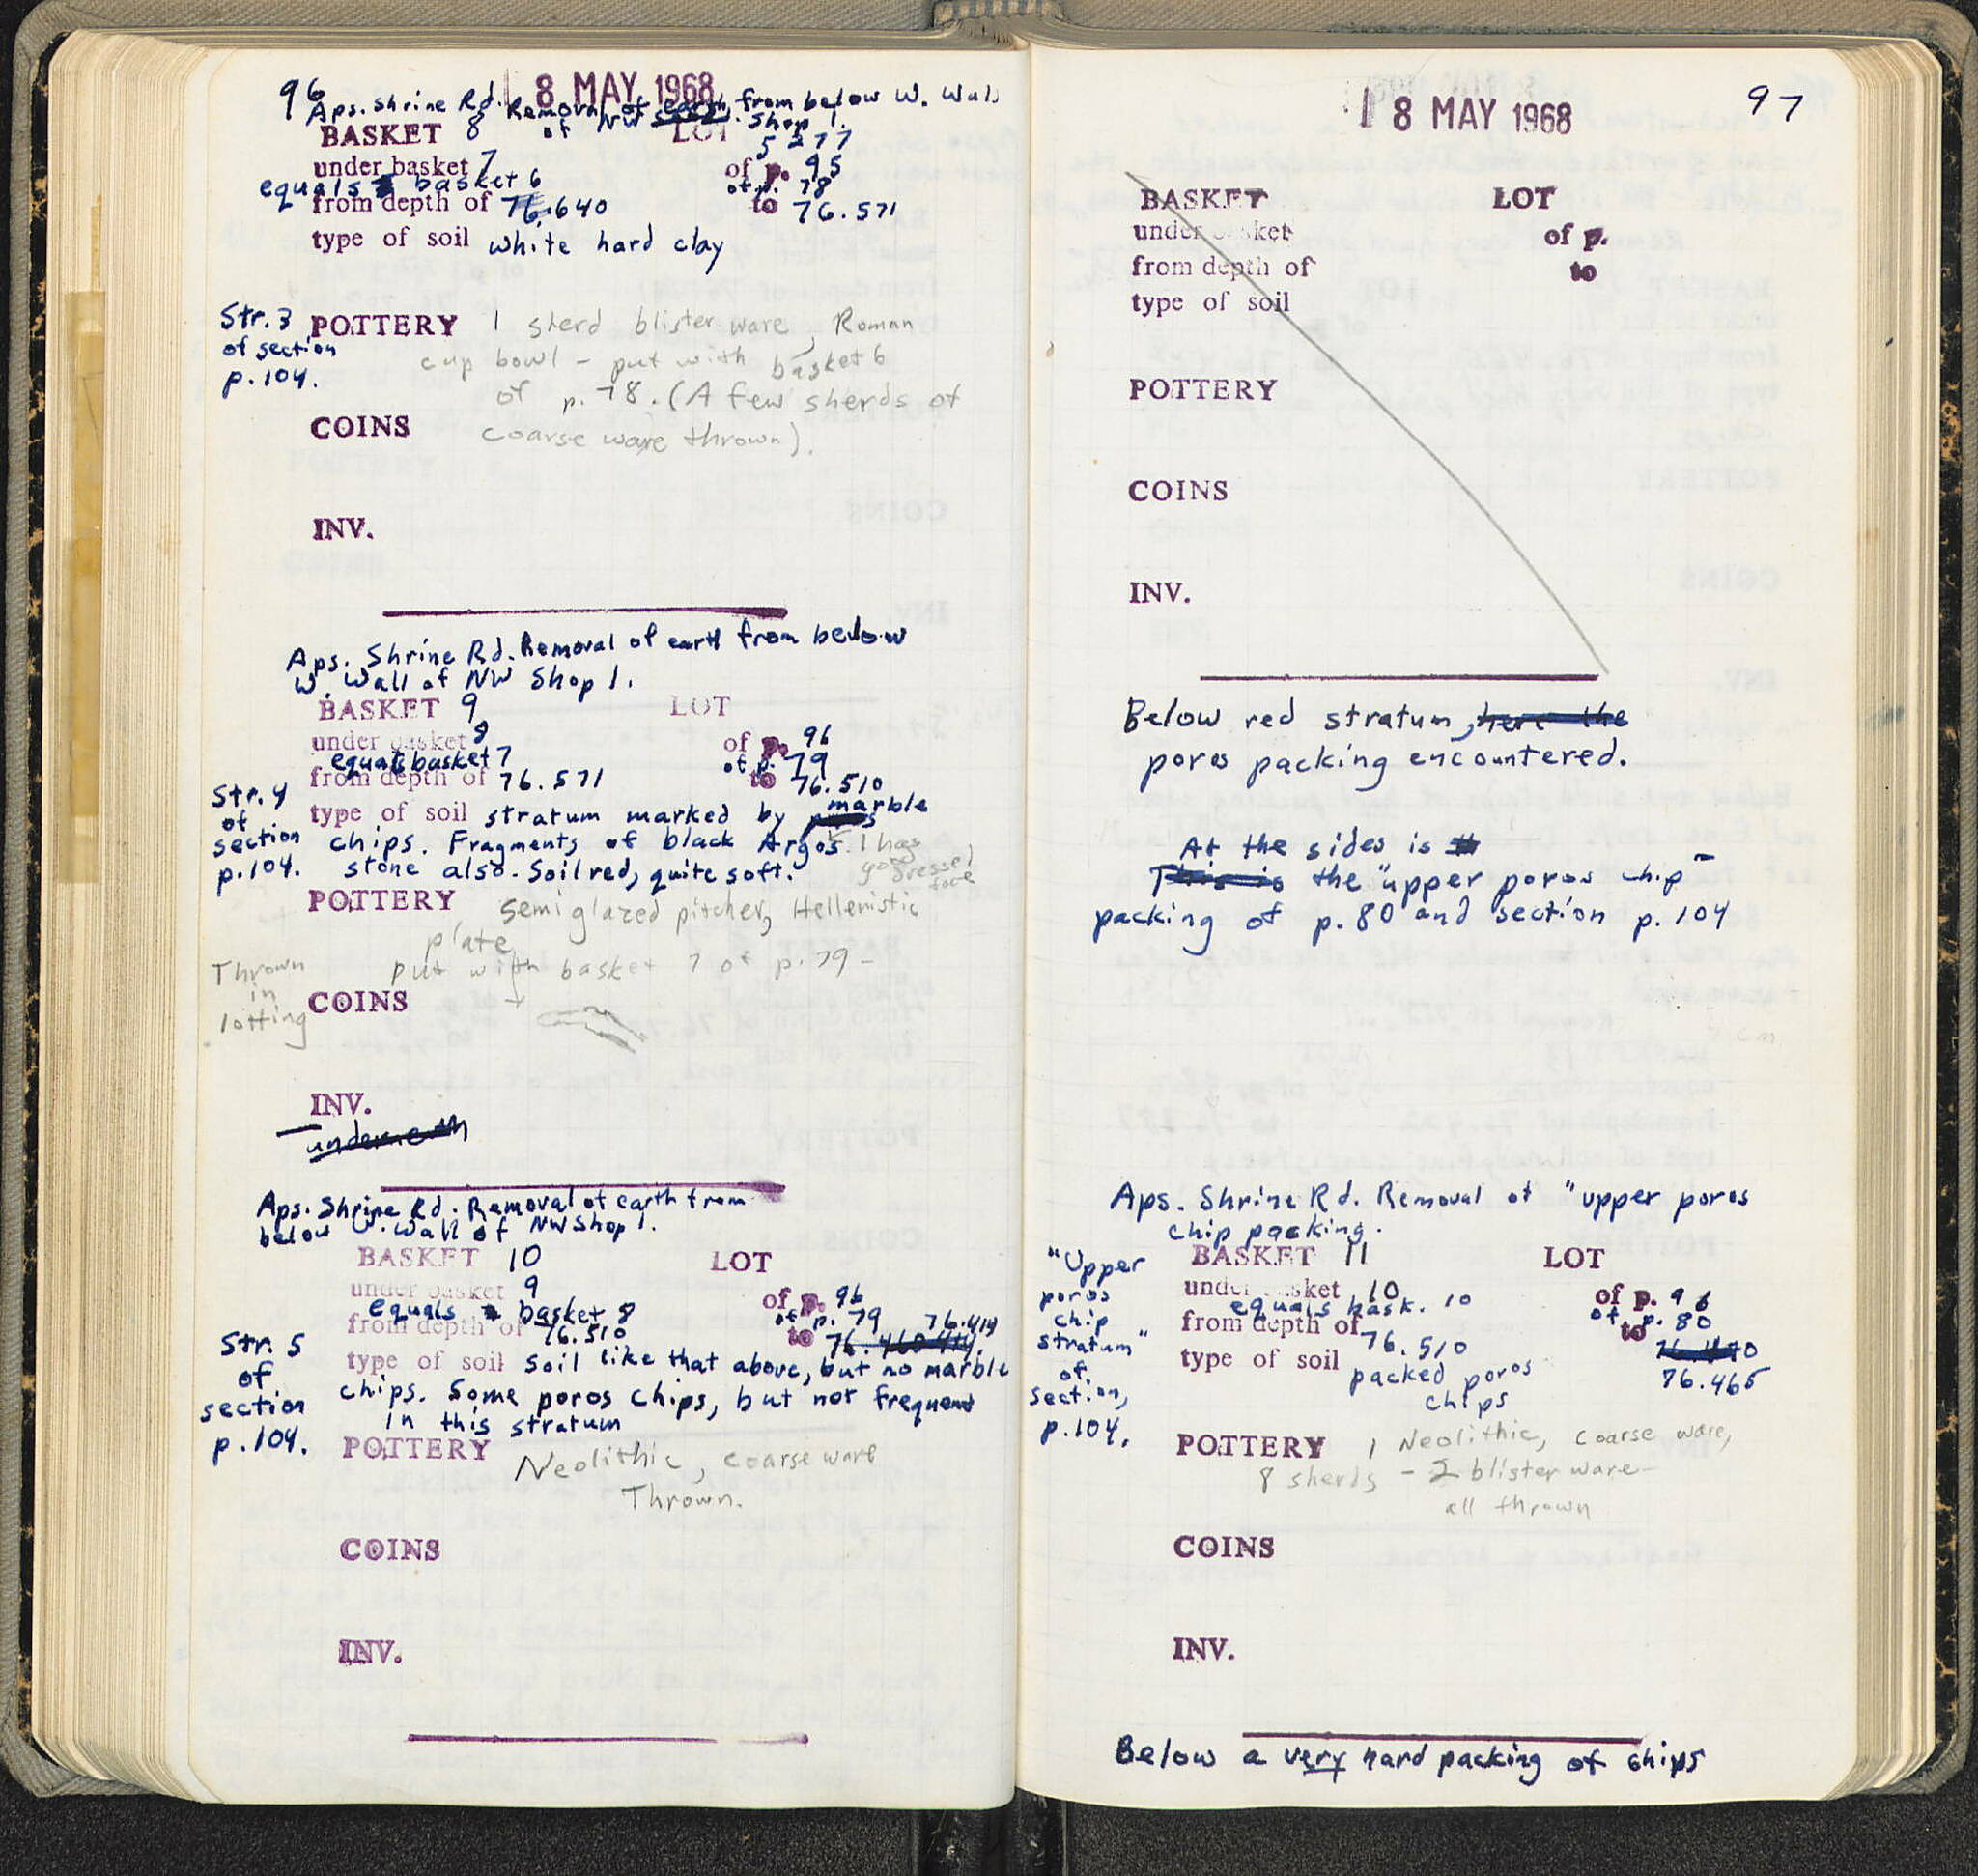 96
18 MAY 1968
Aps. Shrine Rd. Removal of earth from below W. Wall
of NW Shop 1.
BASKET 8 LOT 5277
under basket 7 of p. 95
equals basket 6 of p. 78
from depth of 76.640 to 76.571
type of soil white hard clay
Str. 3
of section
p. 104.
POTTERY 1 sherd blister ware, Roman
cup bowl – put with basket 6
of p. 78. (A few sherds of
coarse ware thrown).
COINS
INV.
Aps. Shrine Rd. Removal of earth from below
W. Wall of NW Shop 1.
BASKET 9 LOT
under basket 8 of p. 96
equals basket 7 of p. 79
from depth of 76.571 to 76.510
Str. 4
of
section
p. 104.
type of soil stratum marked by marble
chips. Fragments of black Argos
stone also. Soil red, quite soft.
1 has
good
dressed
face
POTTERY semiglazed pitcher, Hellenistic
plate
put with basket 7 of p. 79 –
Thrown
in
lotting
COINS
INV.
underneath
Aps. Shrine Rd. Removal of earth from
below W. Wall of NW Shop 1.
BASKET 10 LOT
under basket 9 of p. 96
equals basket 8 of p. 79
from depth of 76.510 to 76.414
Str. 5
of
section
p. 104.
type of soil soil like that above, but no marble
chips. Some poros chips, but not frequent
in this stratum
POTTERY Neolithic, coarse ware
Thrown.
COINS
INV.
18 MAY 1968
97
BASKET LOT
under basket of p.
from depth of to
type of soil
POTTERY
COINS
INV.
Below red stratum, here the
poros packing encountered.
At the sides is
This is the "upper poros chip"
packing of p. 80 and section p. 104
Aps. Shrine Rd. Removal of "upper poros
chip packing.
"Upper
poros
chip
stratum"
of
section,
p. 104.
BASKET 11 LOT
under basket 10 of p. 96
equals bask. 10 of p. 80
from depth of 76.510 to 76.470
76.465
type of soil packed poros
chips
POTTERY 1 Neolithic, coarse ware,
8 sherds – 2 blister ware –
all thrown
COINS
INV.
Below a very hard packing of chips